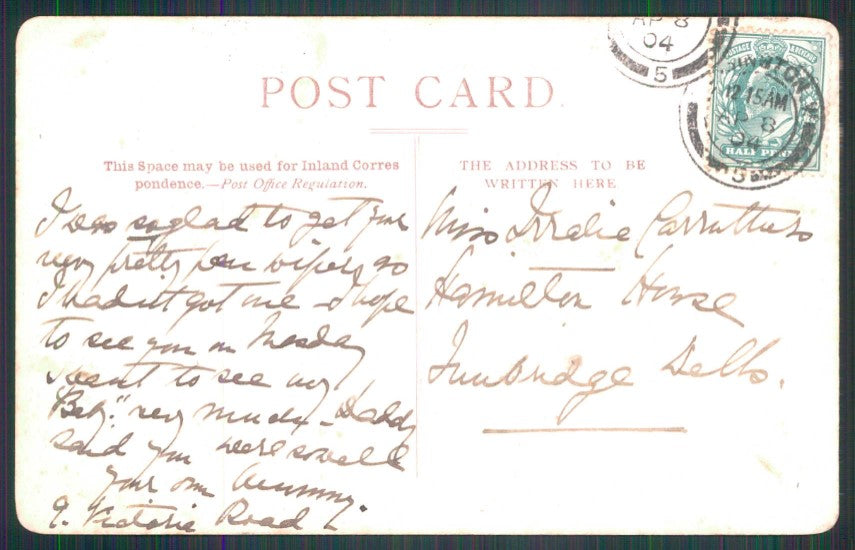 AP 8
04
5
POSTAGE
12.15AM
AP 8
04
5
HALF PENNY
POST CARD.
This Space may be used for Inland Corres
pondence.—Post Office Regulation.
THE ADDRESS TO BE
WRITTEN HERE
I was so glad to get your
very pretty pen wiper, as
I hadn't got one - I hope
to see you on Monday
I want to see my
"Baby" very much - Daddy
said you were so well
your own Mummy.
9. Victoria Road
Miss Carruthers
Hamilton House
Tunbridge Wells.